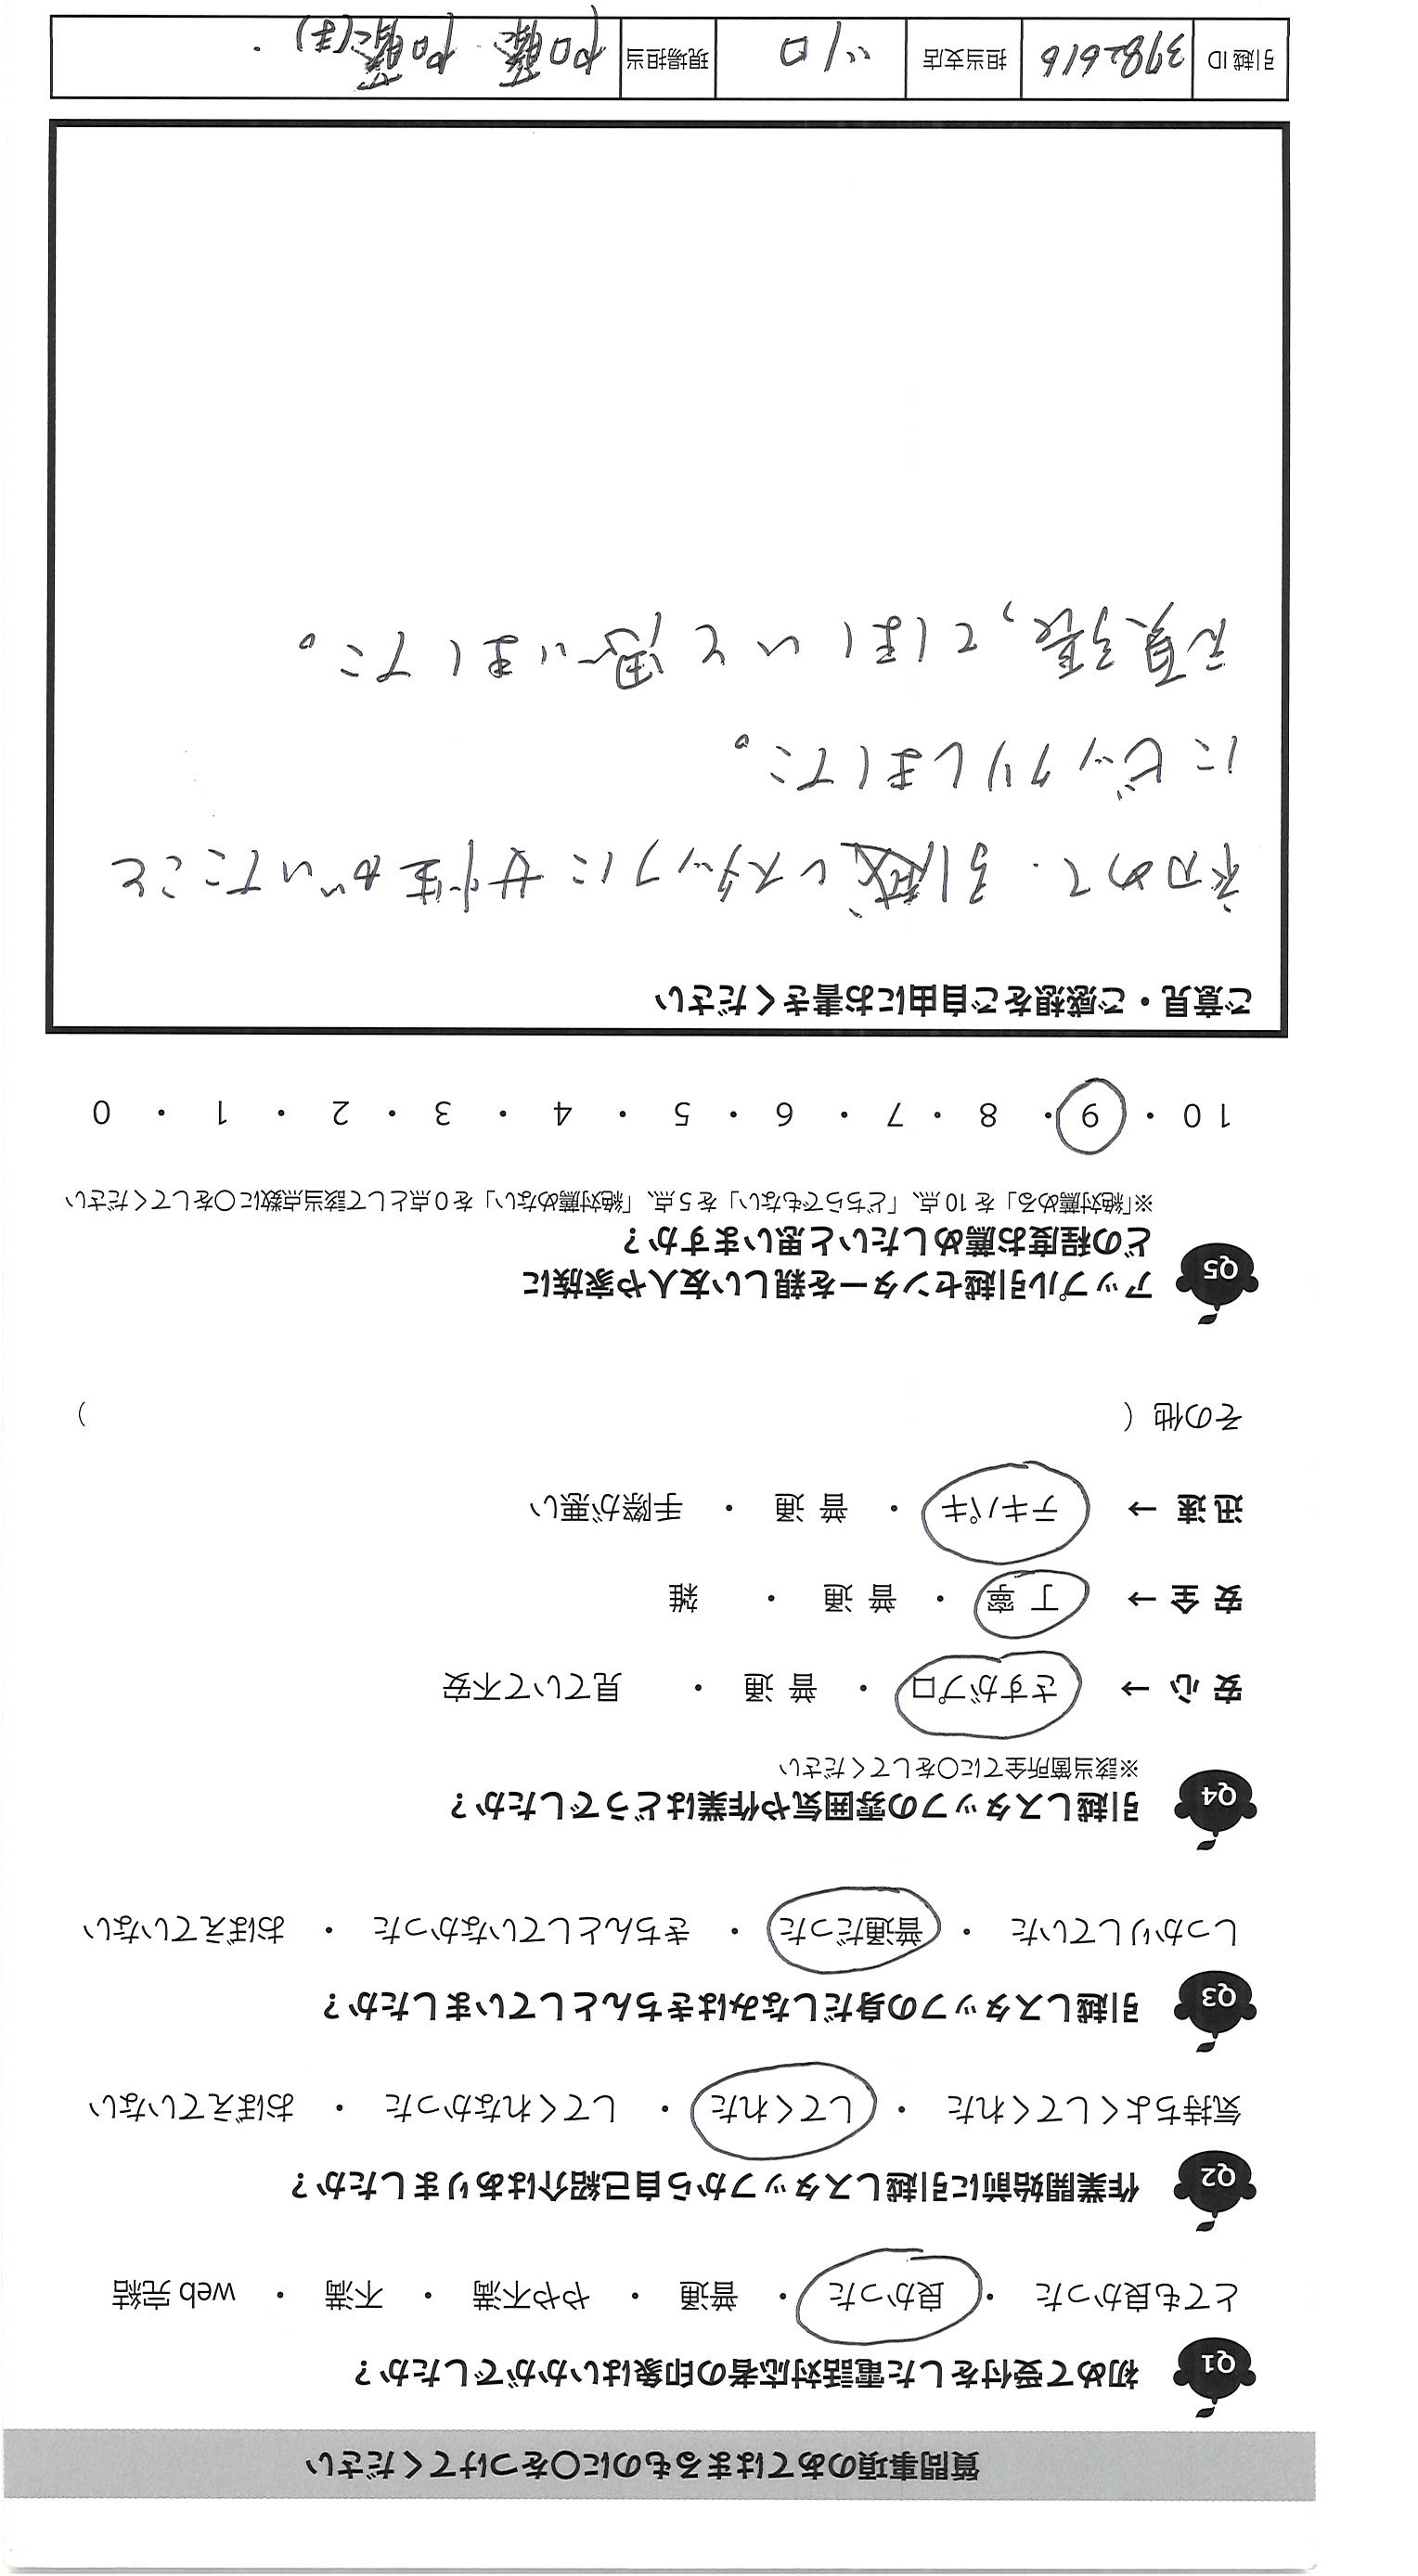 質問事項のあてはまるものに○をつけてください
Q1 初めて受付をした電話対応者の印象はいかがでしたか？
とても良かった ・ 良かった ・ 普通 ・ やや不満 ・ 不満 ・ web 完結
Q2 作業開始前に引越しスタッフから自己紹介はありましたか？
気持ちよくしてくれた ・ してくれた ・ してくれなかった ・ おぼえていない
Q3 引越しスタッフの身だしなみはきちんとしていましたか？
しっかりしていた ・ 普通だった ・ きちんとしていなかった ・ おぼえていない
Q4 引越しスタッフの雰囲気や作業はどうでしたか？
※該当箇所全てに○をしてください
安 心 → さすがプロ ・ 普 通 ・ 見ていて不安
安 全 → 丁 寧 ・ 普 通 ・ 雑
迅 速 → テキパキ ・ 普 通 ・ 手際が悪い
その他（ ）
Q5 アップル引越センターを親しい友人や家族に
どの程度お薦めしたいと思いますか？
※「絶対薦める」を 10 点、「どちらでもない」を 5 点、「絶対薦めない」を 0 点として該当点数に○をしてください
10 ・ 9 ・ 8 ・ 7 ・ 6 ・ 5 ・ 4 ・ 3 ・ 2 ・ 1 ・ 0
ご意見・ご感想をご自由にお書きください
初めて、引越しスタッフに女性がいたこと
にビックリしました。
頑張ってほしいと思いました。
引越 ID 3982616 担当支店 現場担当 加藤 加藤(ま)